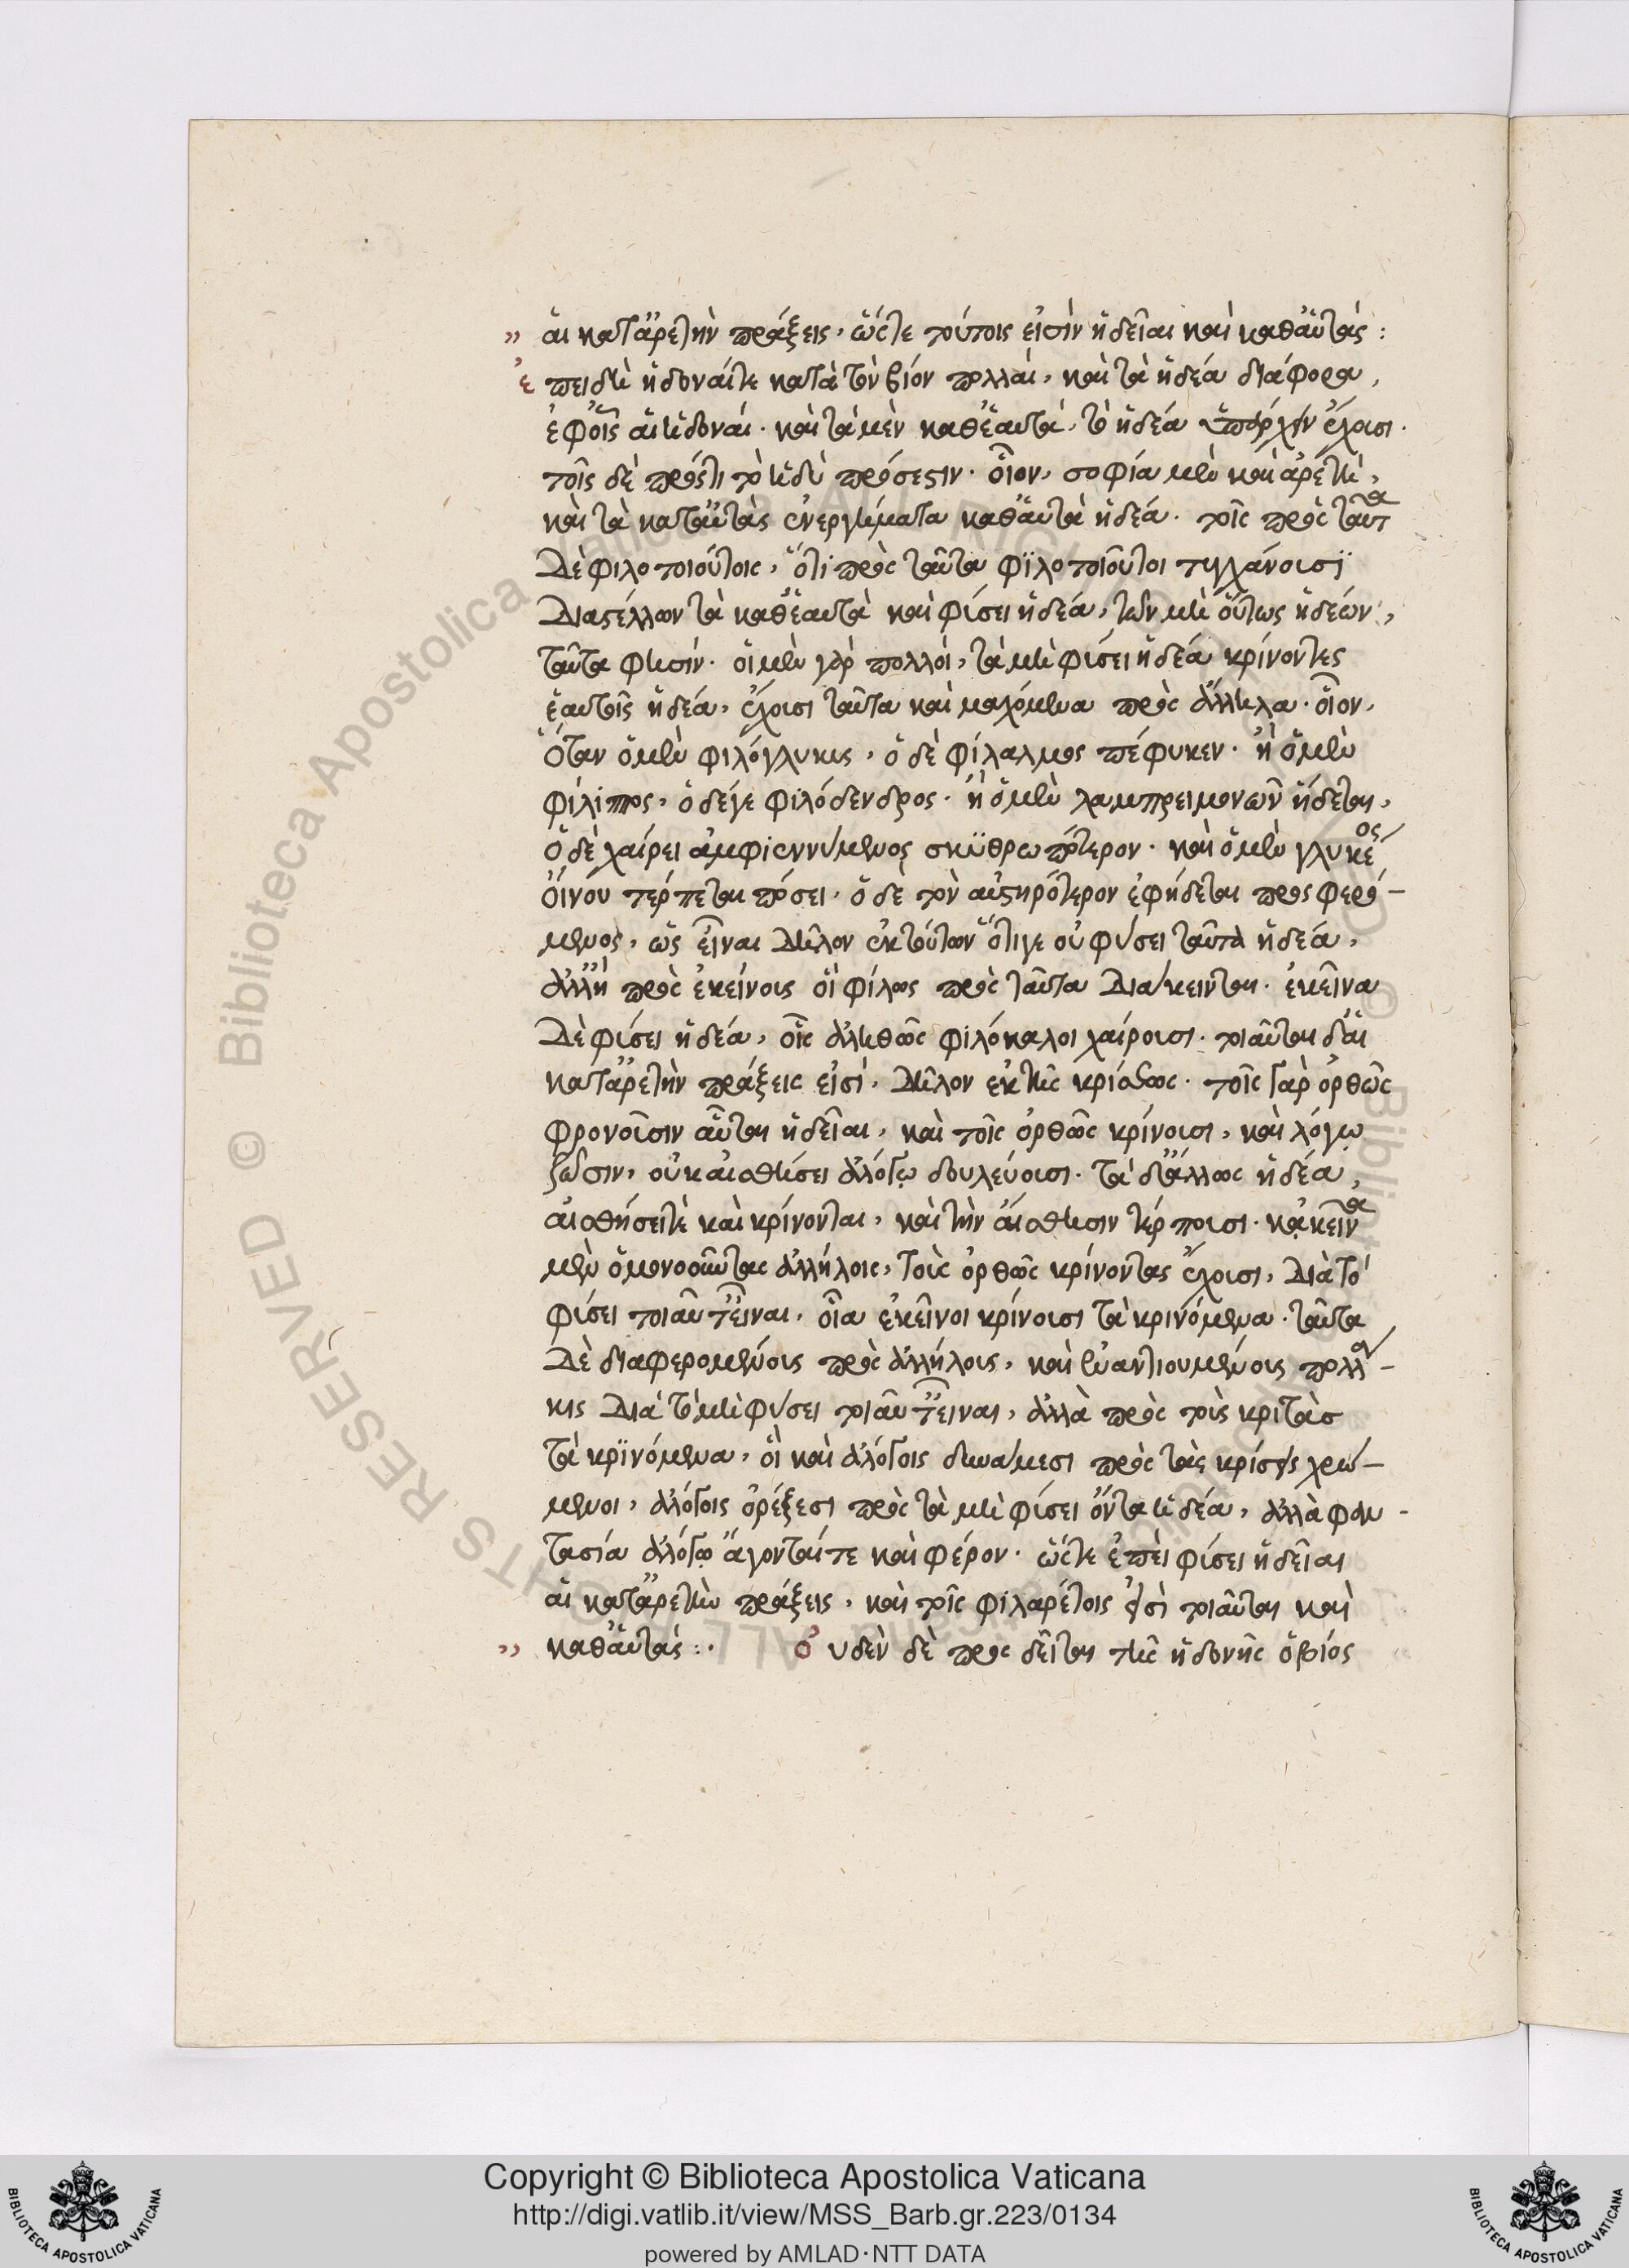 αἱ κατἀρετὴν πράξεις, ὥστε τούτοις εἰσὶν ἡδεῖαι καὶ καθἁυτάς :
ἐπειδὴ ἡδοναίτε κατὰ τὸν βίον πολλαί, καὶ τὰ ἡδέα διάφορα,
ἐφοἷς αἱ ἡδοναί. καὶ τὰ μὲν καθἑαυτά, τὸ ἡδέα ὑπάρχειν ἔχουσι.
τοῖς δὲ πρός τι τὸ ἡδὺ πρόσεστιν. οἷον, σοφία μὲν καὶ ἀρετὴ,
καὶ τὰ κατἀυτὰς ἐνεργήματα καθἁυτὰ ἡδέα. τοῖς πρὸς ταῦτα
δὲ φιλοτοιούτοις, ὅτι πρὸς ταῦτα φϊλοτοιοῦτοι τυγχάνουσϊ
διαστέλλων τὰ καθἑαυτὰ καὶ φύσει ἡδέα, τῶν μὴ οὕτως ἡδέων,
ταῦτα φησίν. οἱ μὲν γὰρ πολλοί, τὰ μὴ φύσει ἡδέα κρίνοντες
ἑαυτοῖς ἡδέα, ἔχουσι ταῦτα καὶ μαχόμενα πρὸς ἄλληλα. οἷον,
Ὅταν ὁ μὲν φιλόγλυκυς, ὁ δὲ φίλαλμος πέφυκεν. ἢ ὁ μὲν
φίλιππος, ὁ δέγε φιλόδενδρος. ἢ ὁ μὲν λαμπρειμονῶν ἥδεται,
ὁ δὲ χαίρει ἀμφιεννύμενος σκϋθρωπότερον. καὶ ὁ μὲν γλυκέος
ὀίνου τέρπεται πόσει. ὁ δε τὸν αὐστηρότερον ἐφήδεται προσφερό-
μενος, ὡς εἶναι δῆλον ἐκ τούτων ὅτιγε οὐ φύσει ταῦτὰ ἡδέα,
ἀλλἢ πρὸς ἐκείνους οἳ φίλως πρὸς ταῦτα διάκεινται. ἐκεῖνα
δὲ φύσει ἡδέα, οἷς ἀληθῶς φιλόκαλοι χαίρουσι. τοιαῦται δἁι
κατἀρετὴν πράξεις εἰσί. δῆλον ἐκ τῆς κρίσεως. τοῖς γὰρ ὀρθῶς
φρονοῦσιν αὗται ἡδεῖαι, καὶ τοῖς ὀρθῶς κρίνουσι, καὶ λόγω
ζῶσιν, οὐκ αἰσθήσει ἀλόγῳ δουλεύουσι. τὰ δἄλλως ἡδέα,
αἰσθήσειτὲ καὶ κρίνονται, καὶ τὴν ἄισθησιν τέρπουσι. κἀκεῖνα
μὲν ὁμονοοῦντας ἀλλήλοις, τοὺς ὀρθῶς κρίνοντας ἔχουσι, διὰ τὸ
φύσει τοιαῦτ εἶναι, οἷα ἐκεῖνοι κρίνουσι τὰ κρινόμενα. ταῦτα
δὲ διαφερομένους πρὸς ἀλλήλους, καὶ ἐναντιουμένους πολλά-
κις διὰ τὸ μὴ φύσει τοιαῦτ εἶναι, ἀλλὰ πρὸς τοὺς κριτὰσ
τὰ κρϊνόμενα, οἳ καὶ ἀλόγοις δυνάμεσι πρὸς τὰς κρίσεις χρώ-
μενοι, ἀλόγοις ὀρέξεσι πρὸς τὰ μὴ φύσει ὄντα ἡδέα, ἀλλὰ φαν-
τασία ἀλόγῳ ἄγονταίτε καὶ φέρον. ὥστε ἐπὲι φύσει ἡδεῖαι
αἱ κατἀρετὴν πράξεις, καὶ τοῖς φιλαρέτοις εἰσὶ τοιαῦται καὶ
καθἁυτάς :. Οὐδὲν δὲ προσδεῖται τῆς ἡδονῆς ὁ βίος
Copyright © Biblioteca Apostolica Vaticana
http://digi.vatlib.it/view/MSS_Barb.gr.223/0134
powered by AMLAD·NTT DATA